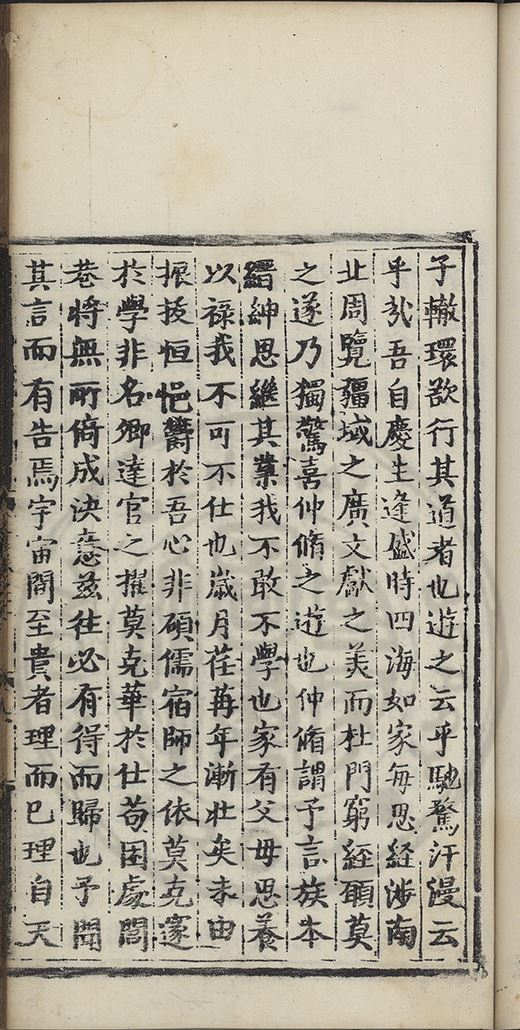 子轍環欲行其道者也遊之云乎馳騖汗漫云
乎㢤吾自慶生逢盛時四海如家每思經涉南
北周覽疆域之廣文獻之美而杜門窮經願莫
之遂乃獨驚喜仲脩之遊也仲脩謂予言族本
縉紳思繼其業我不敢不學也家有父母思養
以禄我不可不仕也歳月荏苒年漸壯矣未由
振拔恒悒欝於吾心非碩儒宿師之依莫克邃
於學非名卿達官之擢莫克華於仕苟困處閭
巷將無所倚成决意兹往必有得而歸也予聞
其言而有告焉宇宙間至貴者理而已理自天